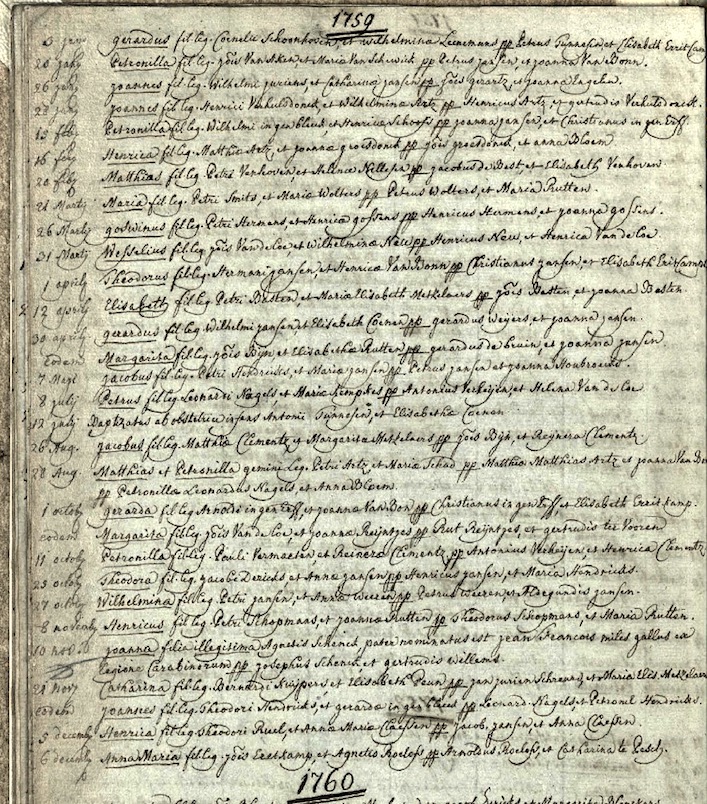 1759
gerardus fil: leg. Cornelii Schoonhoven, et Wilhelmina Leenemans pp Petrus Tunnesen, et Elisabeth
Petronilla fil. leg. jois Van Aken et Maria Van Scherwick pp Petrus jansen, et joanna Van Bonn.
26 jany joannes fil. leg. Wilhelmi juriens, et Catharina jansen pp jois gerartz, et joanna
joannes fil leg Henrici Verhulsdonck, et Wilhelmina Artz pp Henricus Artz, et gertrudis Verhulsdonck.
13 feby Petronilla fil leg. Wilhelmi in gen et Henrica Schooff pp joanna jansen, et Christianus in gen Eiff.
16 feby Henrica fil. leg. Matthiæ Artz, et joanna groesdonck pp jois groesdonck, et anna Bloem.
20 feby Matthias fil leg Petri Vanhoven et Helena Nillessen pp jacobus de Best, et Elisabeth Venhoven
21 Martij Maria fil. leg. Petri Smits, et Maria Wolters pp Petrus Wolters, et Maria Rutten.
26 Martij goswinus fil leg. Petri Hermens, et Henrica gossens pp Henricus Hermens, et joanna gossens.
31 Martij Wesselius fil leg. jois Van de Loe et Wilhelmina New pp Henricus New, et Henrica Van de Loe
1 aprilij Theodorus fil. leg. Hermani jansen, et Henrica Van Bonn pp Christianus jansen, et Elisabeth
12 aprilij Elisabeth fil leg. Petri Basten, et Maria Elisabeth Metzelaers pp jois Basten et joanna Basten.
30 aprilij gerardus fil. leg. Wilhelmi jansen et Elisabeth Coenen pp gerardus Weijers, et joanna jansen.
eodem Margarita fil. leg. jois Bijn, et Elisabetha Rutten pp gerardus de bruin, et joanna jansen
7 Maji jacobus fil. leg. Petri Hendricks, et Maria jansen pp Petrus jansen et joanna
8 julij Petrus fil leg Leonardi Nagels et Maria Kempkes pp Antonius Verheijen, et Helena Van de Loe
12 julij Baptizatus ab obstetrice infans Antonii Tunnesen, et Elisabetha Coenen
26 Aug. jacobus fil leg. Matthiæ Clementz, et Margarita Metzelaers pp jois Bijn, et Reijnera Clementz
28 Aug. Matthias et Petronilla gemini leg. Petri Artz, et Maria Schad pp Matthiæ Matthias Artz et joanna Van
pp Petronillæ Leonardus Nagels, et Anna Bloem.
1 octob gerarda fil leg Arnoldi in gen Eiff, et joanna Van Bon pp Christianus in gen Eiff, et Elisabeth Eerit kamp.
eodem Margarita fil leg jois Van de Loe, et joanna Reijntjes pp Rut Reijntjes, et gertrudis te Vooren
11 octob Petronilla fil. leg. Pauli Vermaeten et Reinera Clementz pp Antonius Verheijen, et Henrica Clementz
23 octob Theodora fil. leg. jacobi Dericks et Anna jansen pp Henricus jansen, et Maria Hendricks.
27 octob Wilhelmina fil leg Petri jansen, et Anna Weeren pp Petrus Weeren et Aldegundis jansen.
8 novemb Henricus fil leg. Petri Schopmans, et joanna Rutten pp Theodorus Schopmans, et Maria Rutten.
10 nov joanna filia illegitima Agnetis Schenck, pater nominatus est jean Francois miles gallus ex
legione Carabinorum pp josephus Schenck, et gertrudis Willems.
21 Nov Catharina fil. leg. Bernardi Kuijpers, et Elisabeth Peun pp jan jurien Schreurs, et Maria Elis. Metzelaers
eodem joannes fil leg. Theodori Hendricks, et gerarda in gen pp Leonard. Nagels, et Petronel Hendricks.
5 decemb Henrica fil leg Theodori Ruel, et Anna Maria Claessen pp jacob. jansen, et Anna Claessen.
6 decemb Anna Maria fil. leg. jois Eeretkamp, et Agnetis Roelofs pp Arnoldus Roelofs, et Catharina te Pesch.
1760